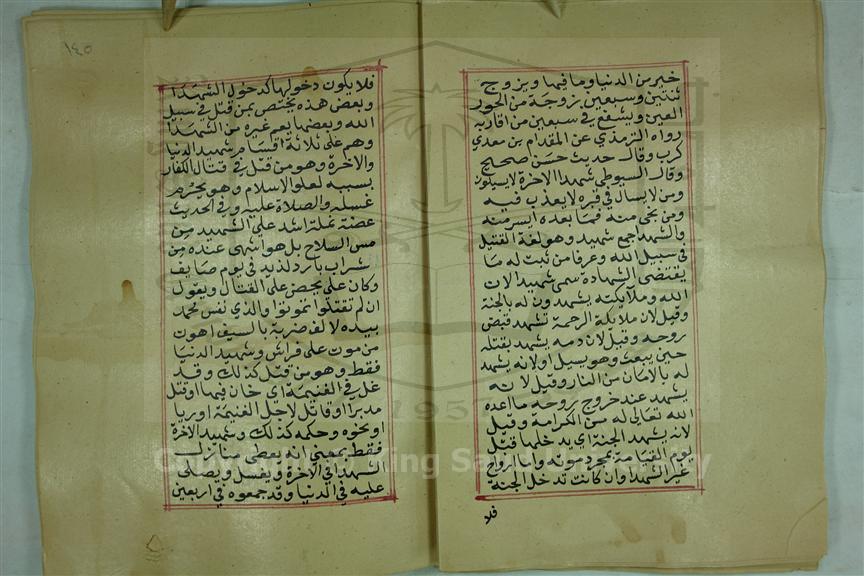 خير من الدنيا وما فيها ويزوج
ثنتين وسبعين زوجة من الحور
العين ويشفع في سبعين من اقاربه
رواه الترمذي عن المقدام بن معدي
كرب وقال حديث حسن صحيح
وقال السيوطي شهدا الاخرة لايسيلون
ومن لايسال في قبره لايعذب فيه
ومن نجى منه فما بعده ايسر منه
والشهدا جمع شهيد وهو لغة القتيل
في سبيل الله وعرفا من ثبت له ما
يقتضى الشهادة سمى شهيدا لان
الله وملايكته يشهدون له بالجنة
وقيل لان ملايكة الرحمة تشهد قبض
روحه وقيل لان دمه يشهد بقتله
حين يبعث وهو يسيل او لانه يشهد
له بالامان من النار وقيل لانه
يشهد عند خروج روحه ما اعده
الله تعالى له من الكرامة وقيل
لانه يشهد الجنة اي يدخلها قبل
يوم القيامة بمجرد موته واما ارواح
غير الشهدا وان كانت تدخل الجنة
فلا
١٤٥
فلا يكون دخولها كدخول الشهدا
وبعض هذه يختص بمن قتل في سبيل
الله وبعضها يعم غيره من الشهدا
وهم على ثلاثة اقسام شهيد الدنيا
والاخرة وهو من قتل في قتال الكفار
بسببه لعلو الاسلام وهو يحرم
غسله والصلاة عليه وفي الحديث
عضة نملة اشد على الشهيد من
مس السلاح بل هو اشهى عنده من
شراب بارد لذيذ في يوم صايف
وكان علي يحض على القتال ويقول
ان لم تقتلوا تموتوا والذي نفس محمد
بيده لالف ضربة بالسيف اهون
من موت على فراش وشهيد الدنيا
فقط وهو من قتل كذلك وقد
غل في الغنيمة اي خان فيها او قتل
مدبرا او قاتل لاجل الغنيمة او ريا
او نحوه وحكمه كذلك وشهيد الاخرة
فقط بمعنى انه يعطى منازل
الشهدا في الاخرة ويغسل ويصلى
عليه في الدنيا وقد جمعوه في اربعين
1957
King Saud University